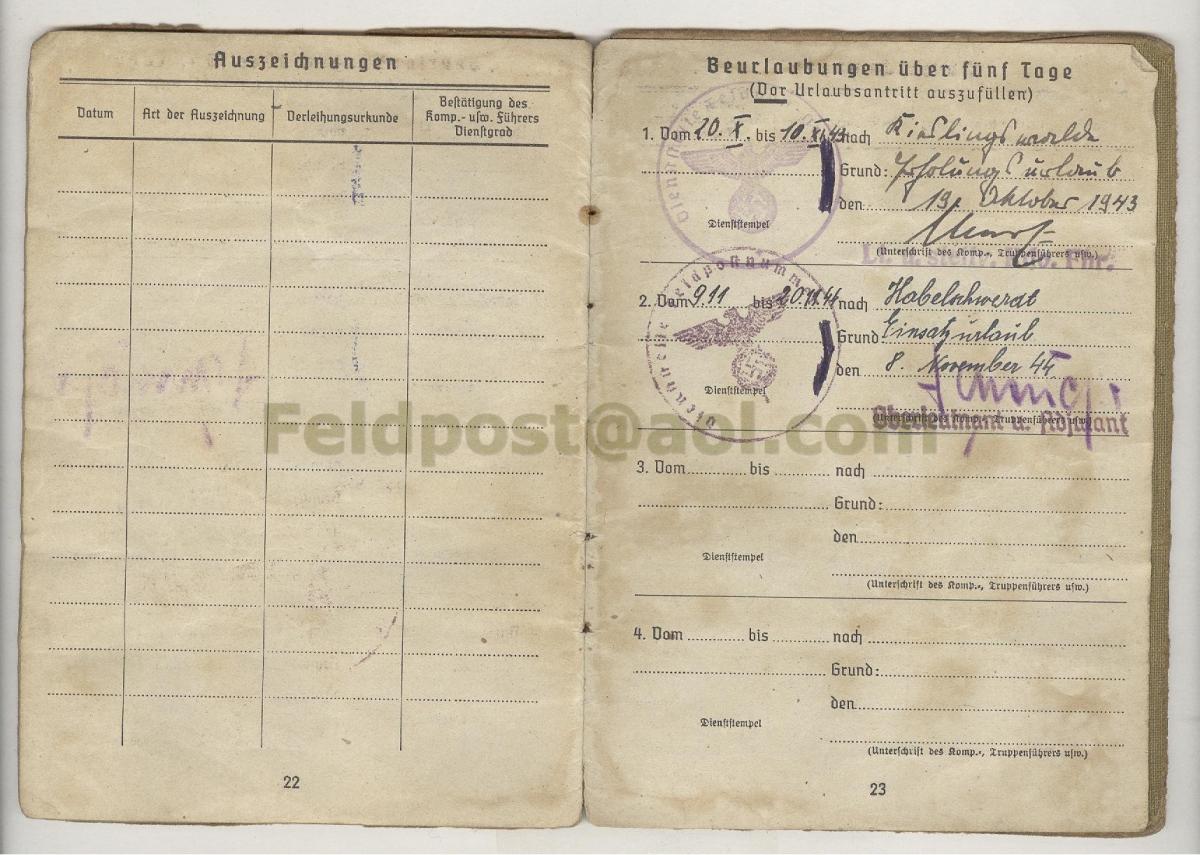 Auszeichnungen
Datum
Art der Auszeichnung
Verleihungsurkunde
Bestätigung des
Komp.- usw. Führers
Dienstgrad
22
Beurlaubungen über fünf Tage
(Vor Urlaubsantritt auszufüllen)
1. Vom 20. X. bis 10. XI. 43 nach Kieslingswalde
Grund: Erholungsurlaub
den 19. Oktober 1943
Dienststempel
(Unterschrift des Komp.-, Truppenführers usw.)
Dienststelle Feldpostnummer
2. Vom 9.11 bis 20.11.44 nach Habelschwerdt
Grund: Einsatzurlaub
den 8. November 44
Dienststempel
(Unterschrift des Komp.-, Truppenführers usw.)
Oberleutnant u. Adjutant
Feldpost@aol.com
3. Vom bis nach
Grund:
den
Dienststempel
(Unterschrift des Komp.-, Truppenführers usw.)
4. Vom bis nach
Grund:
den
Dienststempel
(Unterschrift des Komp.-, Truppenführers usw.)
23